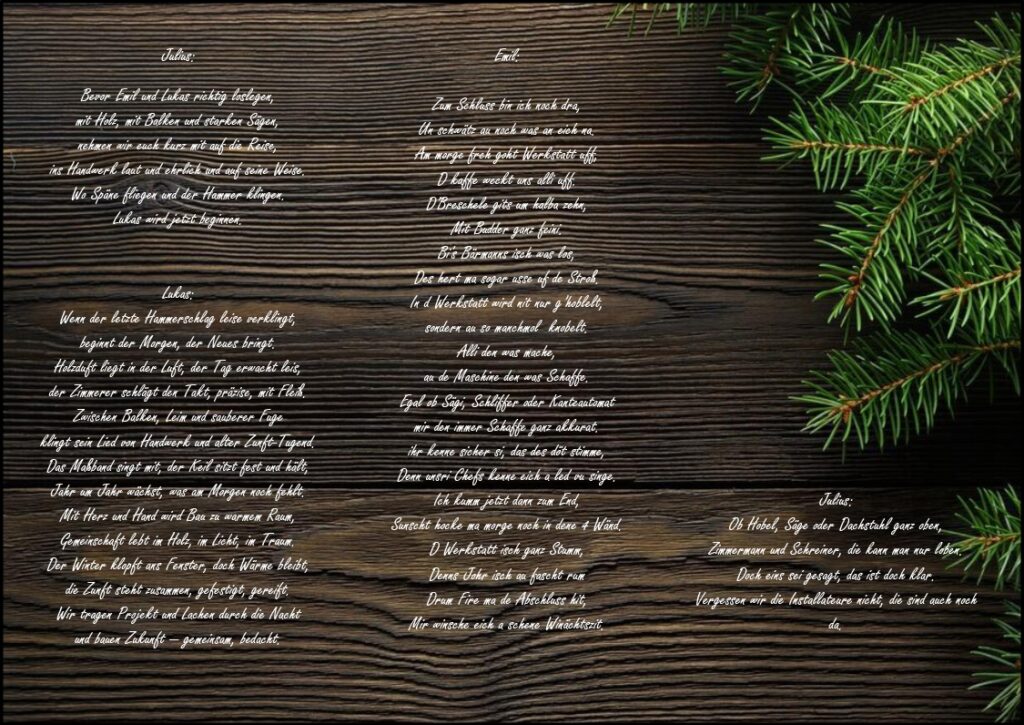 Julius:
Bevor Emil und Lukas richtig loslegen,
mit Holz, mit Balken und starken Sägen,
nehmen wir euch kurz mit auf die Reise,
ins Handwerk laut und ehrlich und auf seine Weise.
Wo Späne fliegen und der Hammer klingen.
Lukas wird jetzt beginnen.
Lukas:
Wenn der letzte Hammerschlag leise verklingt,
beginnt der Morgen, der Neues bringt.
Holzduft liegt in der Luft, der Tag erwacht leis,
der Zimmerer schlägt den Takt, präzise, mit Fleiß.
Zwischen Balken, Leim und sauberer Fuge
klingt sein Lied von Handwerk und alter Zunft-Tugend.
Das Maßband singt mit, der Keil sitzt fest und hält,
Jahr um Jahr wächst, was am Morgen noch fehlt.
Mit Herz und Hand wird Bau zu warmem Raum,
Gemeinschaft lebt im Holz, im Licht, im Traum.
Der Winter klopft ans Fenster, doch Wärme bleibt,
die Zunft steht zusammen, gefestigt, gereift.
Wir tragen Projekt und Lachen durch die Nacht
und bauen Zukunft – gemeinsam, bedacht.
Emil:
Zum Schluss bin ich noch dra,
Un schwätz au noch was an eich na.
Am morge freh goht Werkstatt uff,
D kaffe weckt uns alli uff.
D'Breschele gits um halba zehn,
Mit Budder ganz feini.
Bi's Bärmanns isch was los,
Des hert ma sogar usse uf de Stroß.
In d Werkstatt wird nit nur g'hoblelt,
sondern au so manchmol knobelt.
Alli den was mache,
au de Maschine den was Schaffe.
Egal ob Sägi, Schliffer oder Kanteautomat
mir den immer Schaffe ganz akkurat.
ihr kenne sicher si, das des döt stimme,
Denn unsri Chefs kenne eich a led vu singe.
Ich kumm jetzt dann zum End,
Sunscht hocke ma morge noch in dene 4 Wänd.
D Werkstatt isch ganz Stumm,
Denns Johr isch au fascht rum
Drum Fire ma de Abschluss hit,
Mir winsche eich a schene Winächtszit.
Julius:
Ob Hobel, Säge oder Dachstuhl ganz oben,
Zimmermann und Schreiner, die kann man nur loben.
Doch eins sei gesagt, das ist doch klar.
Vergessen wir die Installateure nicht, die sind auch noch
da.